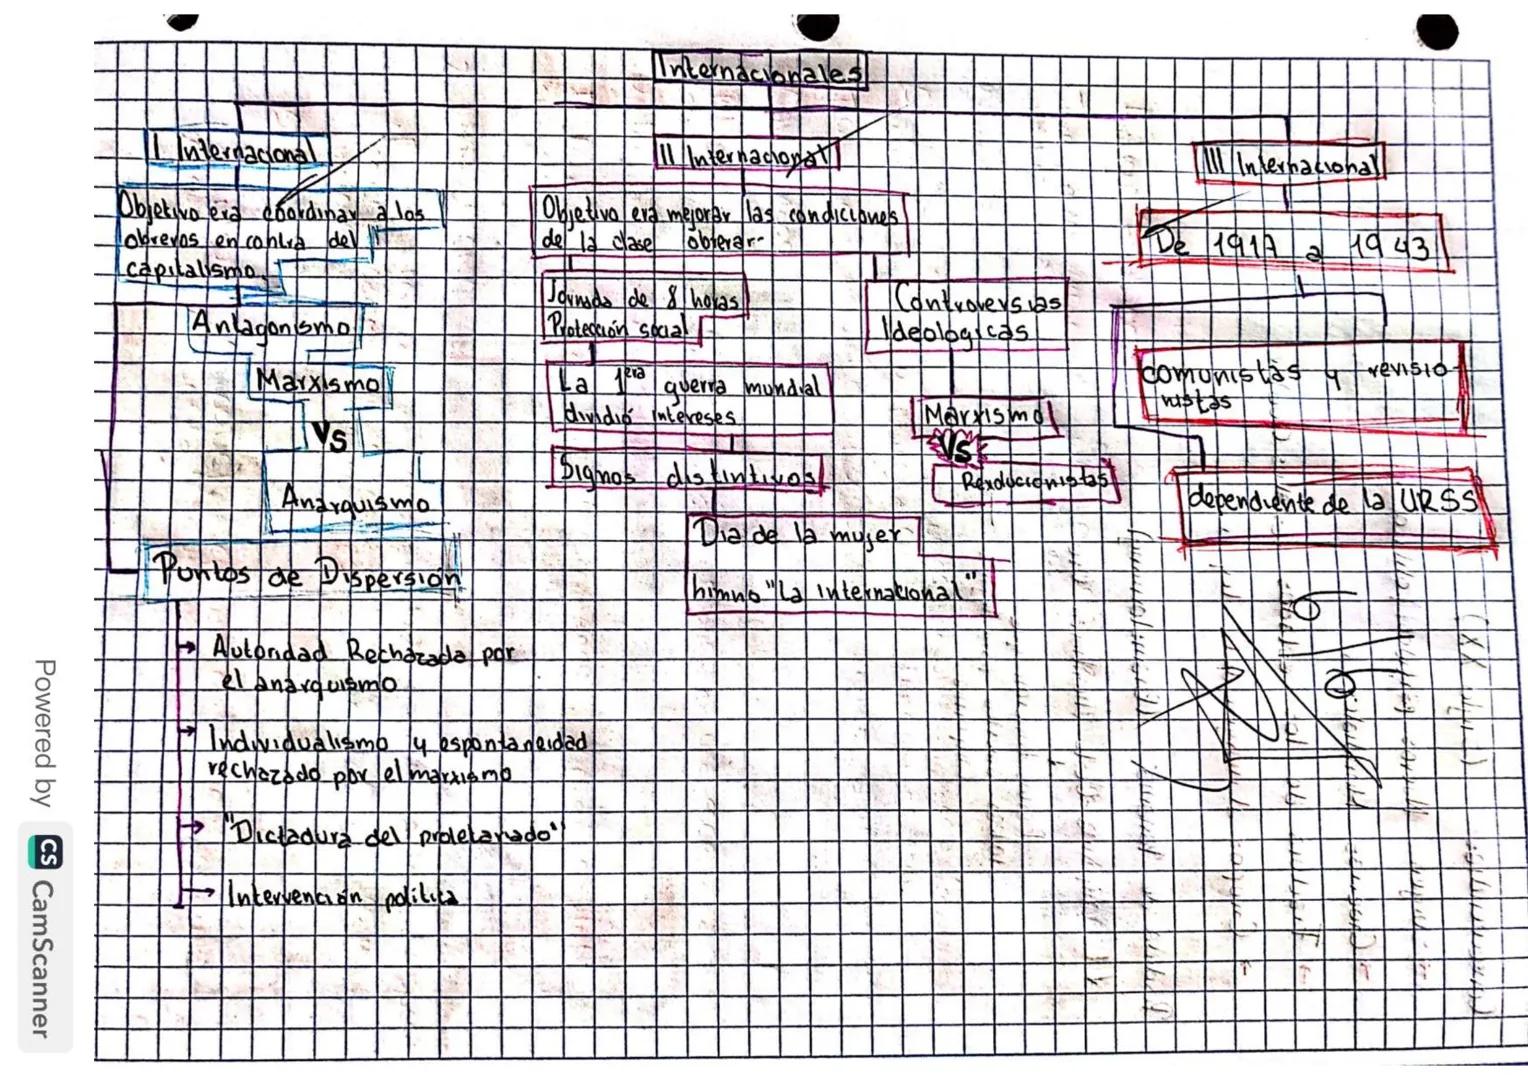 Internacionales
I Internacional
Objetivo era coordinar a los
obreros en contra del
capitalismo.
Antagonismo
Marxismo
VS
Anarquismo
Puntos de Dispersión
Autoridad Rechazada por
el anarquismo
Individualismo y espontaneidad
rechazado por el marxismo
"Dictadura del proletariado"
Intervención política
II Internacional
Objetivo era mejorar las condiciones
de la clase obrerar
Jornada de 8 horas
Protección social
La 1era guerra mundial
dividió intereses
Signos distintivos
Dia de la mujer
himno "La internacional"
Controversias
Ideologicas
Marxismo
VS
III Internacional
De 1917 a 1943
comunistas y revisio
nistas
dependiente de la URSS
Powered by CS CamScanner